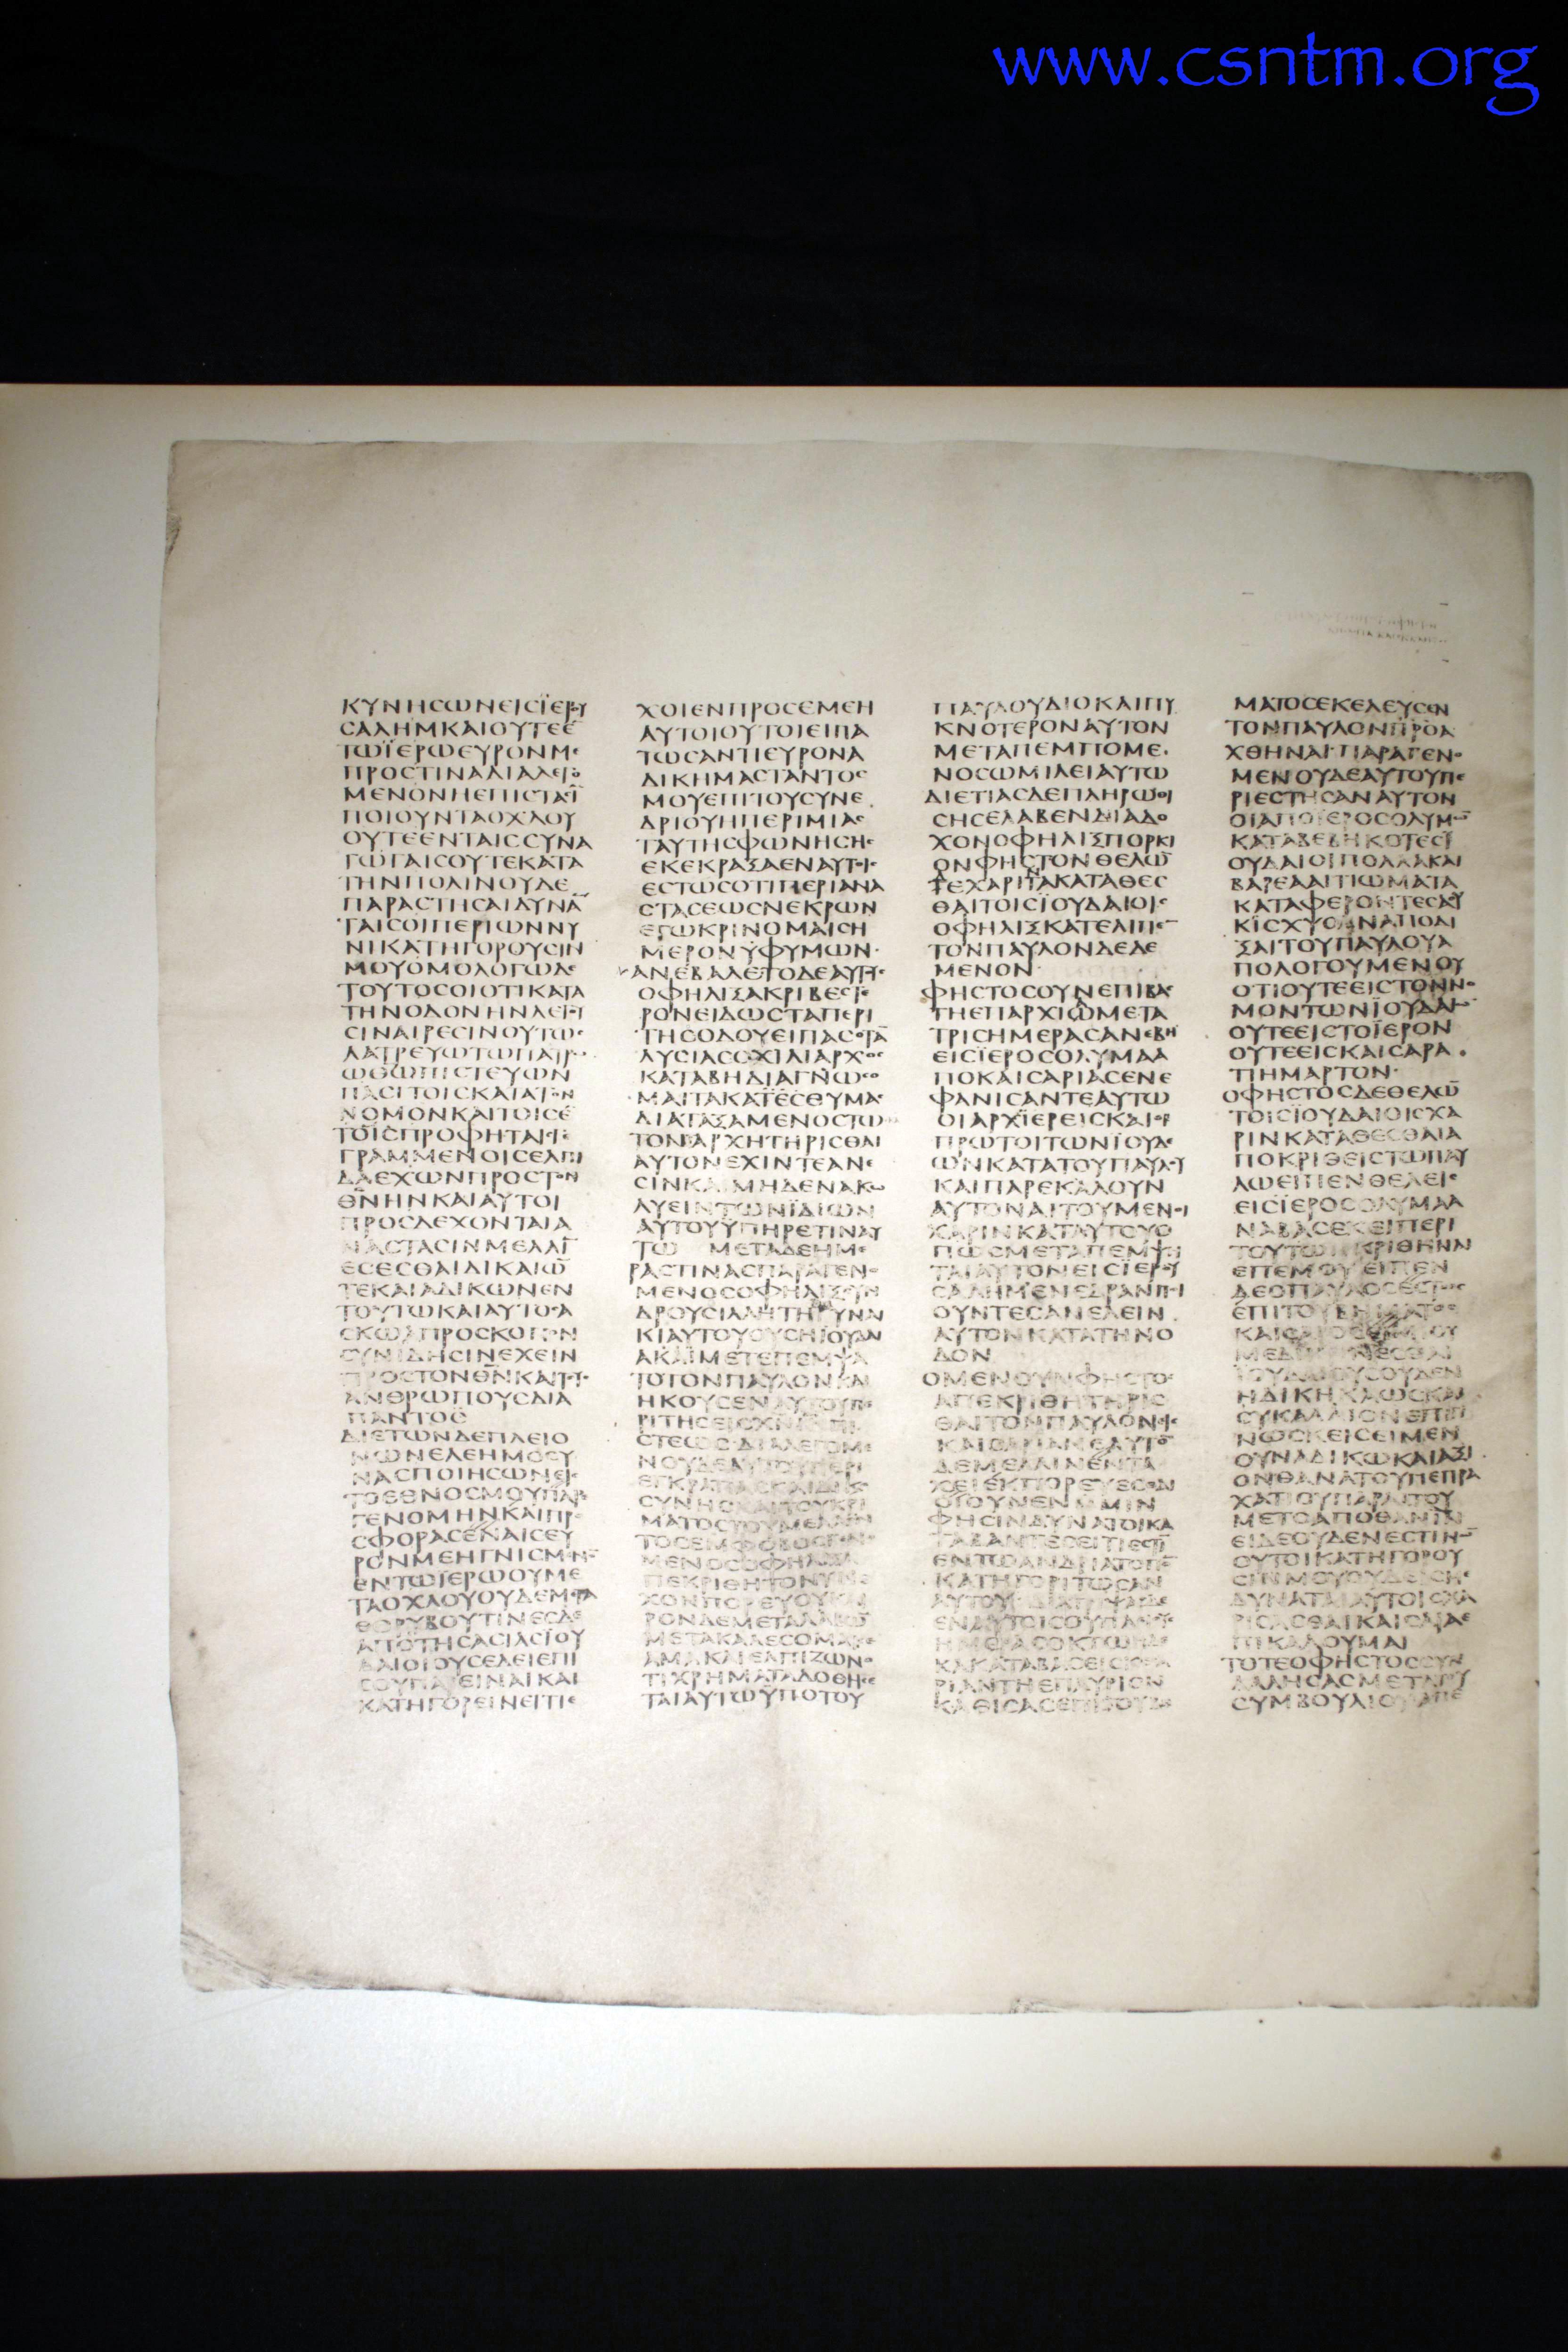 www.csntm.org
ΚΥΝΗϹΩΝΕΙϹΪΕΡΥ
ϹΑΛΗΜΚΑΙΟΥΤΕΕ̅
ΤΩΪΕΡΩΕΥΡΟΝΜΕ
ΠΡΟϹΤΙΝΑΔΙΑΛΕΓΟ
ΜΕΝΟΝΗΕΠΙϹΤΑϹΙ̅
ΠΟΙΟΥΝΤΑΟΧΛΟΥ
ΟΥΤΕΕΝΤΑΙϹϹΥΝΑ
ΓΩΓΑΙϹΟΥΤΕΚΑΤΑ
ΤΗΝΠΟΛΙΝΟΥΔΕ
ΠΑΡΑϹΤΗϹΑΙΔΥΝΑ̅
ΤΑΙϹΟΙΠΕΡΙΩΝΝΥ
ΝΙΚΑΤΗΓΟΡΟΥϹΙΝ
ΜΟΥΟΜΟΛΟΓΩΔΕ
ΤΟΥΤΟϹΟΙΟΤΙΚΑΤΑ
ΤΗΝΟΔΟΝΗΝΛΕΓΟΥ
ϹΙΝΑΙΡΕϹΙΝΟΥΤΩϹ
ΛΑΤΡΕΥΩΤΩΠΑΤΡΩ
ΩΘΩΠΙϹΤΕΥΩΝ
ΠΑϹΙΤΟΙϹΚΑΤΑΤΟΝ
ΝΟΜΟΝΚΑΙΤΟΙϹΕ̅
ΤΟΙϹΠΡΟΦΗΤΑΙϹΓΕ
ΓΡΑΜΜΕΝΟΙϹΕΛΠΙ
ΔΑΕΧΩΝΠΡΟϹΤΟΝ
Θ̅Ν̅ΗΝΚΑΙΑΥΤΟΙ
ΠΡΟϹΔΕΧΟΝΤΑΙΑ
ΝΑϹΤΑϹΙΝΜΕΛΛΙ̅
ΕϹΕϹΘΑΙΔΙΚΑΙΩ̅
ΤΕΚΑΙΑΔΙΚΩΝΕΝ
ΤΟΥΤΩΚΑΙΑΥΤΟϹΑ
ϹΚΩΑΠΡΟϹΚΟΠΟΝ
ϹΥΝΙΔΗϹΙΝΕΧΕΙΝ
ΠΡΟϹΤΟΝΘ̅Ν̅ΚΑΙΤΟΥϹ
ΑΝΘΡΩΠΟΥϹΔΙΑ
ΠΑΝΤΟϹ
ΔΙΕΤΩΝΔΕΠΛΕΙΟ
ΝΩΝΕΛΕΗΜΟϹΥ
ΝΑϹΠΟΙΗϹΩΝΕΙϹ
ΤΟΕΘΝΟϹΜΟΥΠΑΡΕ
ΓΕΝΟΜΗΝΚΑΙΠΡΟ
ϹΦΟΡΑϹΕΝΑΙϹΕΥ
ΡΟΝΜΕΗΓΝΙϹΜΕΝΟ̅
ΕΝΤΩΪΕΡΩΟΥΜΕ
ΤΑΟΧΛΟΥΟΥΔΕΜΕΤΑ
ΘΟΡΥΒΟΥΤΙΝΕϹΔΕ
ΑΠΟΤΗϹΑϹΙΑϹΪΟΥ
ΔΑΙΟΙΟΥϹΕΔΕΙΕΠΙ
ϹΟΥΠΑΡΕΙΝΑΙΚΑΙ
ΚΑΤΗΓΟΡΕΙΝΕΙΤΙΕ
ΧΟΙΕΝΠΡΟϹΕΜΕΗ
ΑΥΤΟΙΟΥΤΟΙΕΙΠΑ
ΤΩϹΑΝΤΙΕΥΡΟΝΑ
ΔΙΚΗΜΑϹΤΑΝΤΟϹ
ΜΟΥΕΠΙΤΟΥϹΥΝΕ
ΔΡΙΟΥΗΠΕΡΙΜΙΑϹ
ΤΑΥΤΗϹΦΩΝΗϹΗϹ
ΕΚΕΚΡΑΞΑΕΝΑΥΤΟΙϹ
ΕϹΤΩϹΟΤΙΠΕΡΙΑΝΑ
ϹΤΑϹΕΩϹΝΕΚΡΩΝ
ΕΓΩΚΡΙΝΟΜΑΙϹΗ
ΜΕΡΟΝΥΦΥΜΩΝ
ΑΝΕΒΑΛΕΤΟΔΕΑΥΤΟΥϹ
ΟΦΗΛΙΞΑΚΡΙΒΕϹΤΕ
ΡΟΝΕΙΔΩϹΤΑΠΕΡΙ
ΤΗϹΟΔΟΥΕΙΠΑϹΟΤΑ̅
ΛΥϹΙΑϹΟΧΙΛΙΑΡΧΟϹ
ΚΑΤΑΒΗΔΙΑΓΝΩϹΟ
ΜΑΙΤΑΚΑΤΕϹΘΥΜΑϹ
ΔΙΑΤΑΞΑΜΕΝΟϹΤΩ
ΤΟΝΤΑΡΧΗΤΗΡΙϹΘΑΙ
ΑΥΤΟΝΕΧΙΝΤΕΑΝΕ
ϹΙΝΚΑΙΜΗΔΕΝΑΚΩ
ΛΥΕΙΝΤΩΝΪΔΙΩΝ
ΑΥΤΟΥΫΠΗΡΕΤΙΝΑΥ
ΤΩ ΜΕΤΑΔΕΗΜΕ
ΡΑϹΤΙΝΑϹΠΑΡΑΓΕΝΟ
ΜΕΝΟϹΟΦΗΛΙΞϹΥΝ
ΔΡΟΥϹΙΛΛΗΤΗΓΥΝΑΙ
ΚΙΑΥΤΟΥΟΥϹΗΙΟΥΔΑΙ
ΑΚΑΙΜΕΤΕΠΕΜΨΑ
ΤΟΤΟΝΠΑΥΛΟΝΚΑΙ
ΗΚΟΥϹΕΝΑΥΤΟΥΠΕ
ΡΙΤΗϹΕΙϹΧ̅Ν̅Ι̅Ν̅ΠΙ
ϹΤΕΩϹΔΙΑΛΕΓΟΜΕ
ΝΟΥΔΕΑΥΤΟΥΠΕΡΙ
ΕΓΚΡΑΤΙΑϹΚΑΙΔΙΚΕΟ
ϹΥΝΗϹΚΑΙΤΟΥΚΡΙ
ΜΑΤΟϹΤΟΥΜΕΛΛΟΝ
ΤΟϹΕΜΦΟΒΟϹΓΕΝΟ
ΜΕΝΟϹΟΦΗΛΙΞΑ
ΠΕΚΡΙΘΗΤΟΝΥΝΕ
ΧΟΝΠΟΡΕΥΟΥΚΑΙ
ΡΟΝΔΕΜΕΤΑΛΑΒΩ̅
ΜΕΤΑΚΑΛΕϹΟΜΑΙϹΕ
ΑΜΑΚΑΙΕΛΠΙΖΩΝΟ
ΤΙΧΡΗΜΑΤΑΔΟΘΗϹΕ
ΤΑΙΑΥΤΩΫΠΟΤΟΥ
ΠΑΥΛΟΥΔΙΟΚΑΙΠΥ
ΚΝΟΤΕΡΟΝΑΥΤΟΝ
ΜΕΤΑΠΕΜΠΟΜΕ
ΝΟϹΩΜΙΛΕΙΑΥΤΩ
ΔΙΕΤΙΑϹΔΕΠΛΗΡΩΘΙ
ϹΗϹΕΛΑΒΕΝΔΙΑΔΟ
ΧΟΝΟΦΗΛΙΞΠΟΡΚΙ
ΟΝΦΗϹΤΟΝΘΕΛΩ̅
ΤΕΧΑΡΙΤΑΚΑΤΑΘΕϹ
ΘΑΙΤΟΙϹΪΟΥΔΑΙΟΙϹ
ΟΦΗΛΙΞΚΑΤΕΛΙΠΕ̅
ΤΟΝΠΑΥΛΟΝΔΕΔΕ
ΜΕΝΟΝ
ΦΗϹΤΟϹΟΥΝΕΠΙΒΑϹ
ΤΗΕΠΑΡΧΙΩΜΕΤΑ
ΤΡΙϹΗΜΕΡΑϹΑΝΕΒΗ
ΕΙϹΪΕΡΟϹΟΛΥΜΑΑ
ΠΟΚΑΙϹΑΡΙΑϹΕΝΕ
ΦΑΝΙϹΑΝΤΕΑΥΤΩ
ΟΙΑΡΧΪΕΡΕΙϹΚΑΙΟΙ
ΠΡΩΤΟΙΤΩΝΪΟΥΔΑΙ
ΩΝΚΑΤΑΤΟΥΠΑΥΛΟΥ
ΚΑΙΠΑΡΕΚΑΛΟΥΝ
ΑΥΤΟΝΑΙΤΟΥΜΕΝΟΙ
ΧΑΡΙΝΚΑΤΑΥΤΟΥΟ
ΠΩϹΜΕΤΑΠΕΜΨΗ
ΤΑΙΑΥΤΟΝΕΙϹΪΕΡΟΥ
ϹΑΛΗΜΕΝΕΔΡΑΝΠΟΙ
ΟΥΝΤΕϹΑΝΕΛΕΙΝ
ΑΥΤΟΝΚΑΤΑΤΗΝΟ
ΔΟΝ
ΟΜΕΝΟΥΝΦΗϹΤΟϹ
ΑΠΕΚΡΙΘΗΤΗΡΙϹ
ΘΑΙΤΟΝΠΑΥΛΟΝΕΙϹ
ΚΑΙϹΑΡΙΑΝΕΑΥΤΟ̅
ΔΕΜΕΛΛΙΝΕΝΤΑ
ΧΕΙΕΚΠΟΡΕΥΕϹΘΑΙ
ΟΙΟΥΝΕΝΥΜΙΝ
ΦΗϹΙΝΔΥΝΑΤΟΙΚΑ
ΤΑΒΑΝΤΕϹΕΙΤΙΕϹΤΙ̅
ΕΝΤΩΑΝΔΡΙΑΤΟΠΟ̅
ΚΑΤΗΓΟΡΙΤΩϹΑΝ
ΑΥΤΟΥ ΔΙΑΤΡΙΨΑϹΔΕ
ΕΝΑΥΤΟΙϹΟΥΠΛΕΙΟΥϹ
ΗΜΕΡΑϹΟΚΤΩΗΔΕ
ΚΑΚΑΤΑΒΑϹΕΙϹΚΕϹΑ
ΡΙΑΝΤΗΕΠΑΥΡΙΟΝ
ΚΑΘΙϹΑϹΕΠΙΤΟΥΒΗ
ΜΑΤΟϹΕΚΕΛΕΥϹΕΝ
ΤΟΝΠΑΥΛΟΝΠΡΟΑ
ΧΘΗΝΑΙΠΑΡΑΓΕΝΟ
ΜΕΝΟΥΔΕΑΥΤΟΥΠΕ
ΡΙΕϹΤΗϹΑΝΑΥΤΟΝ
ΟΙΑΠΟΪΕΡΟϹΟΛΥΜΩ̅
ΚΑΤΑΒΕΒΗΚΟΤΕϹΪ
ΟΥΔΑΙΟΙΠΟΛΛΑΚΑΙ
ΒΑΡΕΑΑΙΤΙΩΜΑΤΑ
ΚΑΤΑΦΕΡΟΝΤΕϹΑΟΥ
ΚΙϹΧΥΟΝΑΠΟΔΙ
ΞΑΙΤΟΥΠΑΥΛΟΥΑ
ΠΟΛΟΓΟΥΜΕΝΟΥ
ΟΤΙΟΥΤΕΕΙϹΤΟΝΝΟ
ΜΟΝΤΩΝΪΟΥΔΑΙΩ̅
ΟΥΤΕΕΙϹΤΟΪΕΡΟΝ
ΟΥΤΕΕΙϹΚΑΙϹΑΡΑ
ΤΙΗΜΑΡΤΟΝ
ΟΦΗϹΤΟϹΔΕΘΕΛΩ̅
ΤΟΙϹΪΟΥΔΑΙΟΙϹΧΑ
ΡΙΝΚΑΤΑΘΕϹΘΑΙΑ
ΠΟΚΡΙΘΕΙϹΤΩΠΑΥ
ΛΩΕΙΠΕΝΘΕΛΕΙϹ
ΕΙϹΪΕΡΟϹΟΛΥΜΑΑ
ΝΑΒΑϹΕΚΕΙΠΕΡΙ
ΤΟΥΤΩΝΚΡΙΘΗΝΑΙ
ΕΠΕΜΟΥΕΙΠΕΝ
ΔΕΟΠΑΥΛΟϹΕϹΤΩϹ
ΕΠΙΤΟΥΒΗΜΑΤΟϹ
ΗΔΙΚΗΚΑΩϹΚΑΙ
ϹΥΚΑΛΛΙΟΝΕΠΙΓΙ
ΝΩϹΚΕΙϹΕΙΜΕΝ
ΟΥΝΑΔΙΚΩΚΑΙΑΞΙ
ΟΝΘΑΝΑΤΟΥΠΕΠΡΑ
ΧΑΤΙΟΥΠΑΡΑΙΤΟΥ
ΜΕΤΟΑΠΟΘΑΝΙΝ
ΕΙΔΕΟΥΔΕΝΕϹΤΙΝΩ̅
ΟΥΤΟΙΚΑΤΗΓΟΡΟΥ
ϹΙΝΜΟΥΟΥΔΕΙϹΜΕ
ΔΥΝΑΤΑΙΑΥΤΟΙϹΧΑ
ΡΙϹΑϹΘΑΙΚΑΙϹΑΡΑΕ
ΠΙΚΑΛΟΥΜΑΙ
ΤΟΤΕΟΦΗϹΤΟϹϹΥΝ
ΛΑΛΗϹΑϹΜΕΤΑΤΟΥ
ϹΥΜΒΟΥΛΙΟΥΑΠΕ